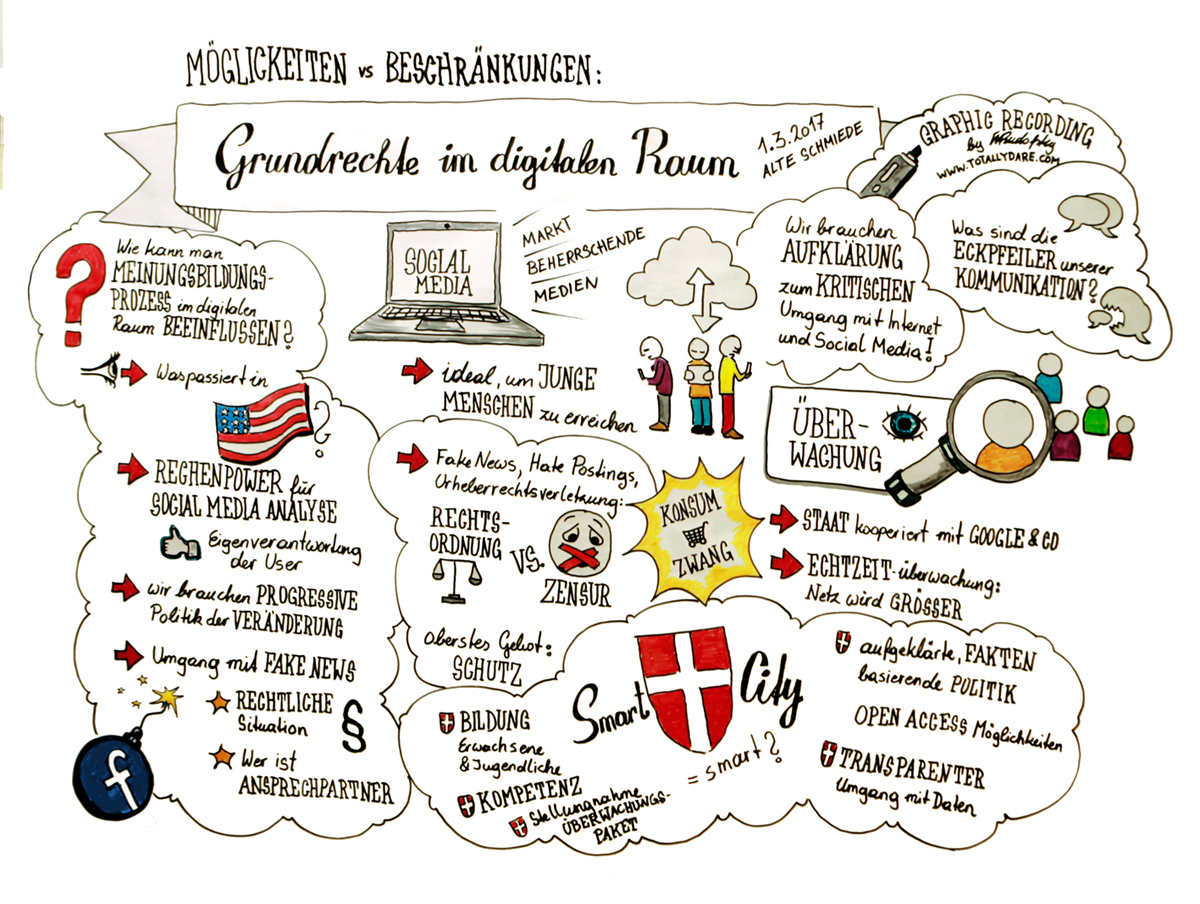 MÖGLICKEITEN vs BESCHRÄNKUNGEN:
Grundrechte im digitalen Raum
1.3.2017
ALTE SCHMIEDE
GRAPHIC RECORDING
by
WWW.TOTALLYDARE.COM
?
Wie kann man
MEINUNGSBILDUNGS-
PROZESS im digitalen
Raum BEEINFLUSSEN?
Was passiert in
?
RECHENPOWER für
SOCIAL MEDIA ANALYSE
Eigenverantwortung
der User
wir brauchen PROGRESSIVE
Politik der VERÄNDERUNG
Umgang mit FAKE NEWS
RECHTLICHE
Situation
§
Wer ist
ANSPRECHPARTNER
f
SOCIAL
MEDIA
MARKT
BEHERRSCHENDE
MEDIEN
ideal, um JUNGE
MENSCHEN zu erreichen
Fake News, Hate Postings,
Urheberrechtsverletzung:
RECHTS-
ORDNUNG
VS.
ZENSUR
oberstes Gebot:
SCHUTZ
KONSUM
ZWANG
Wir brauchen
AUFKLÄRUNG
zum KRITISCHEN
Umgang mit Internet
und Social Media!
Was sind die
ECKPFEILER unserer
KOMMUNIKATION?
ÜBER-
WACHUNG
STAAT kooperiert mit GOOGLE & CO
ECHTZEIT-überwachung:
Netz wird GRÖSSER
Smart City
= smart?
BILDUNG
Erwachsene
& Jugendliche
KOMPETENZ
Stellungnahme
ÜBERWACHUNGS-
PAKET
aufgeklärte, FAKTEN
basierende POLITIK
OPEN ACCESS Möglichkeiten
TRANSPARENTER
Umgang mit Daten